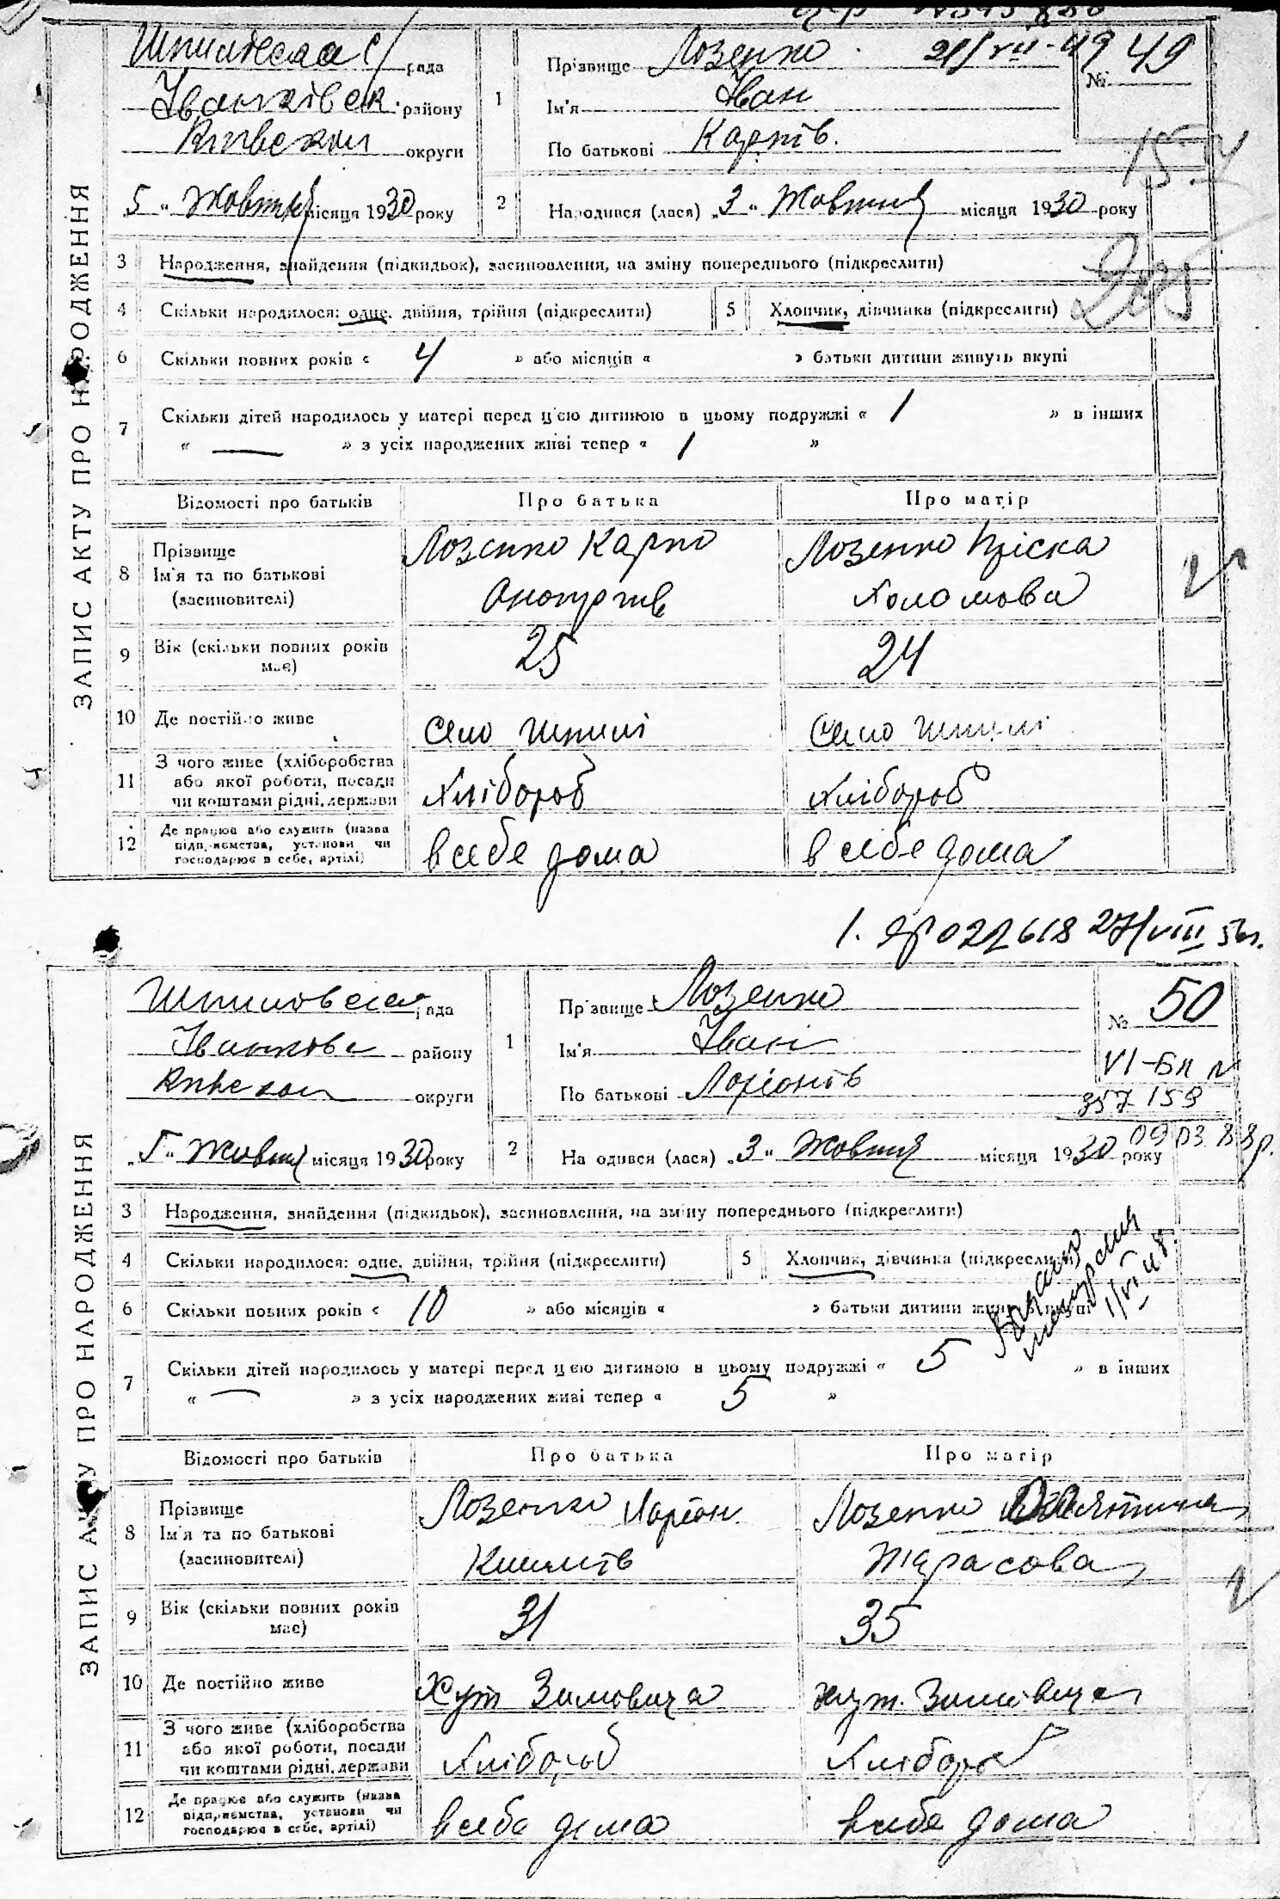 ЗАПИС АКТУ ПРО НАРОДЖЕННЯ
рада
району
округи
5 „ Жовтня місяця 1930 року
1
Прізвище Лозенко
Ім'я Іван
По батькові Карпів.
21/VII-49
№ 49
2
Народився (лася) „3“ Жовтня місяця 1930 року
205
3 Народження, знайдення (підкидьок), засиновлення, на зміну попереднього (підкреслити)
4 Скільки народилося: одне, двійня, трійня (підкреслити)
5 Хлопчик, дівчинка (підкреслити)
6 Скільки повних років « 4 » або місяців « » батьки дитини живуть вкупі
7 Скільки дітей народилось у матері перед цією дитиною в цьому подружжі « 1 » в інших
« — » з усіх народжених живі тепер « 1 »
Відомості про батьків Про батька Про матір
8 Прізвище
Ім'я та по батькові
(засиновителі)
Лозенко Карпо
Лозенко Пріска
9 Вік (скільки повних років має) 25 24
10 Де постійно живе Село Шпилі Село Шпилі
11 З чого живе (хліборобства або якої роботи, посади чи коштами рідні, держави Хлібороб Хлібороб
12 Де працює або служить (назва підприємства, установи чи господарює в себе, артілі) в себе дома в себе дома
1. 022618 27/VIII 56г.
ЗАПИС АКТУ ПРО НАРОДЖЕННЯ
рада
району
округи
„5“ Жовтня місяця 1930 року
1
Прізвище Лозенко
Ім'я Іван
По батькові Ларіонів
№ 50
VI-БК №
357153
09 03 88р.
2
Народився (лася) „3“ Жовтня місяця 1930 року
3 Народження, знайдення (підкидьок), засиновлення, на зміну попереднього (підкреслити)
4 Скільки народилося: одне, двійня, трійня (підкреслити)
5 Хлопчик, дівчинка (підкреслити)
6 Скільки повних років « 10 » або місяців « » батьки дитини живуть вкупі
7 Скільки дітей народилось у матері перед цією дитиною в цьому подружжі « 5 » в інших
« — » з усіх народжених живі тепер « 5 »
Відомості про батьків Про батька Про матір
8 Прізвище
Ім'я та по батькові
(засиновителі)
Лозенко Ларіон
Лозенко
Тарасова
9 Вік (скільки повних років має) 31 35
10 Де постійно живе Хут Зимовища хут. Зимовища
11 З чого живе (хліборобства або якої роботи, посади чи коштами рідні, держави Хлібороб Хлібороб
12 Де працює або служить (назва підприємства, установи чи господарює в себе, артілі) в себе дома в себе дома